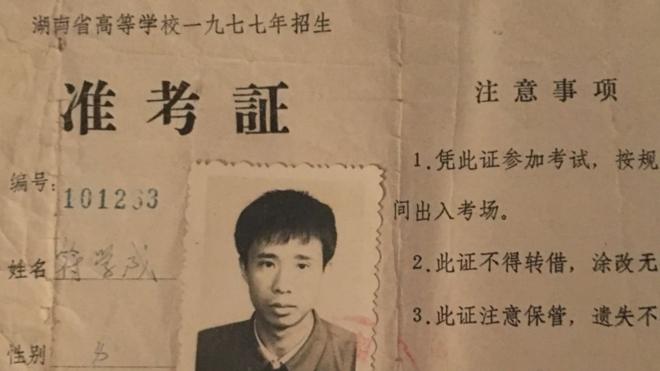 湖南省高等学校一九七七年招生
准考証
编号:
101263
姓名 蒋学成
性别 男
注意事项
1.凭此证参加考试，按规
间出入考场。
2.此证不得转借，涂改无
3.此证注意保管，遗失不